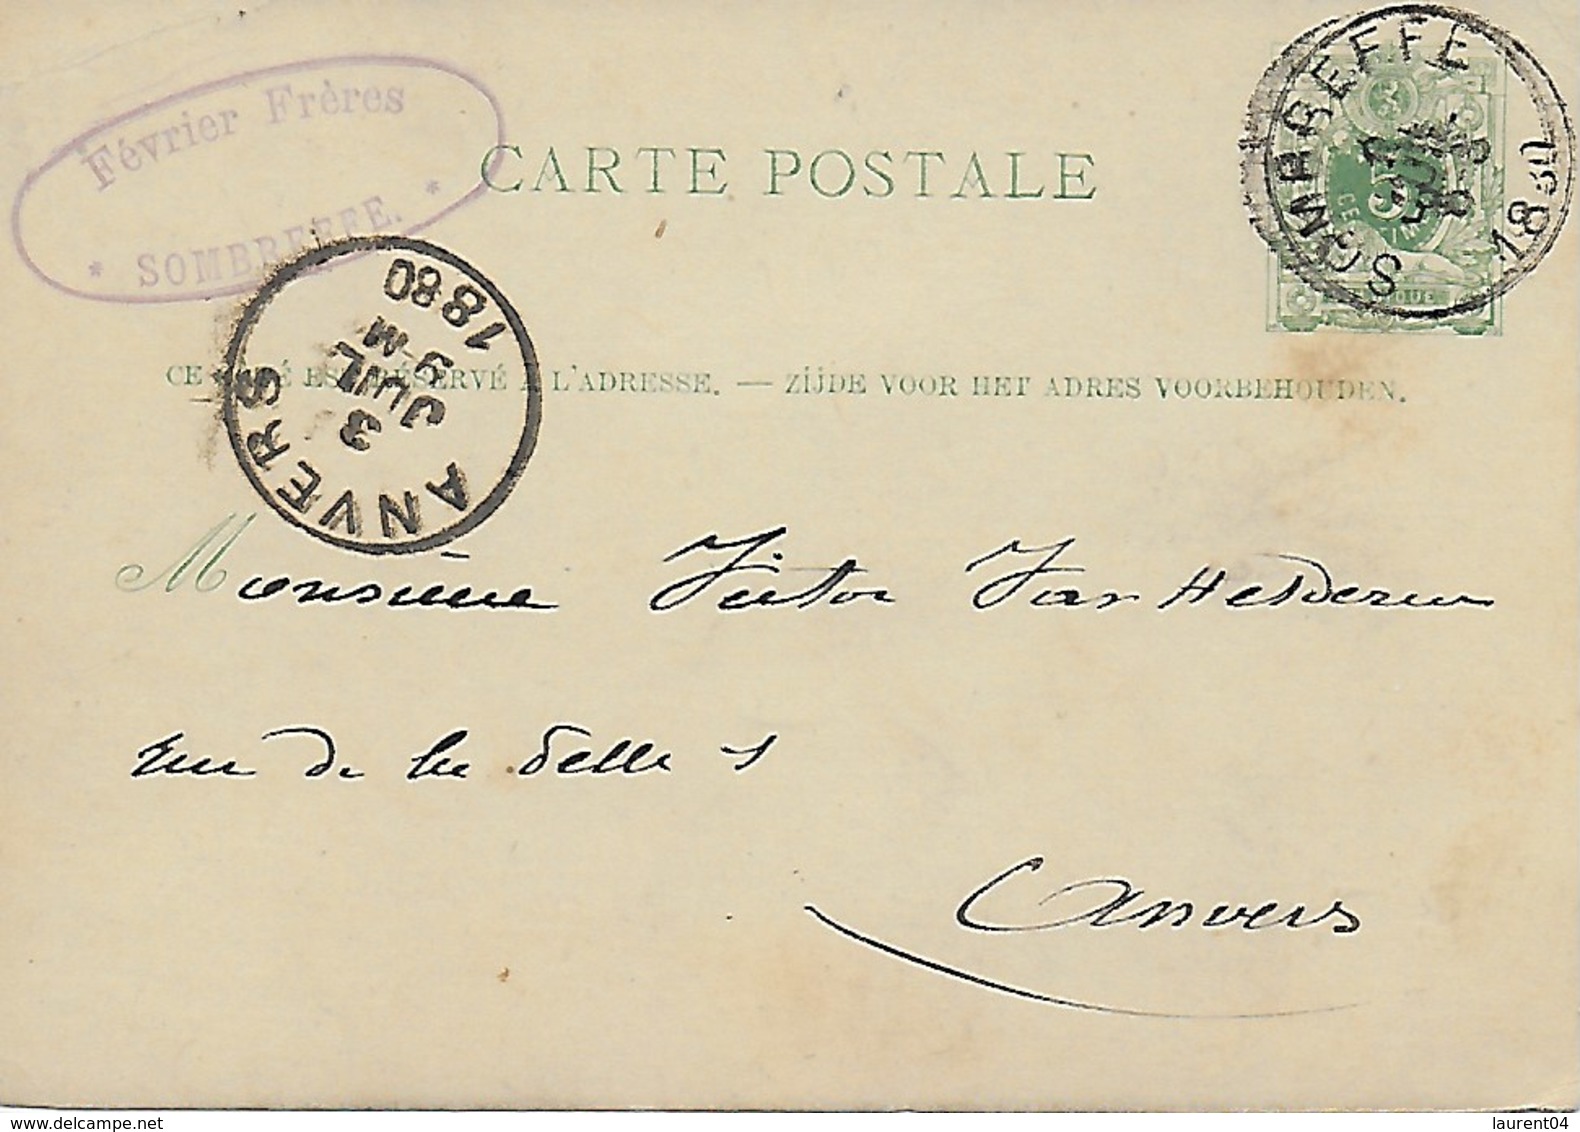 Février Frères
* SOMBREFFE. *
CARTE POSTALE
SOMBREFFE 1880
5
CE CÔTÉ EST RÉSERVÉ À L'ADRESSE. — ZIJDE VOOR HET ADRES VOORBEHOUDEN.
ANVERS
3
JUIL
9 M
1880
Monsieur Victor Van Helderen
rue de la Delle 1
Anvers
www.delcampe.net
laurent04